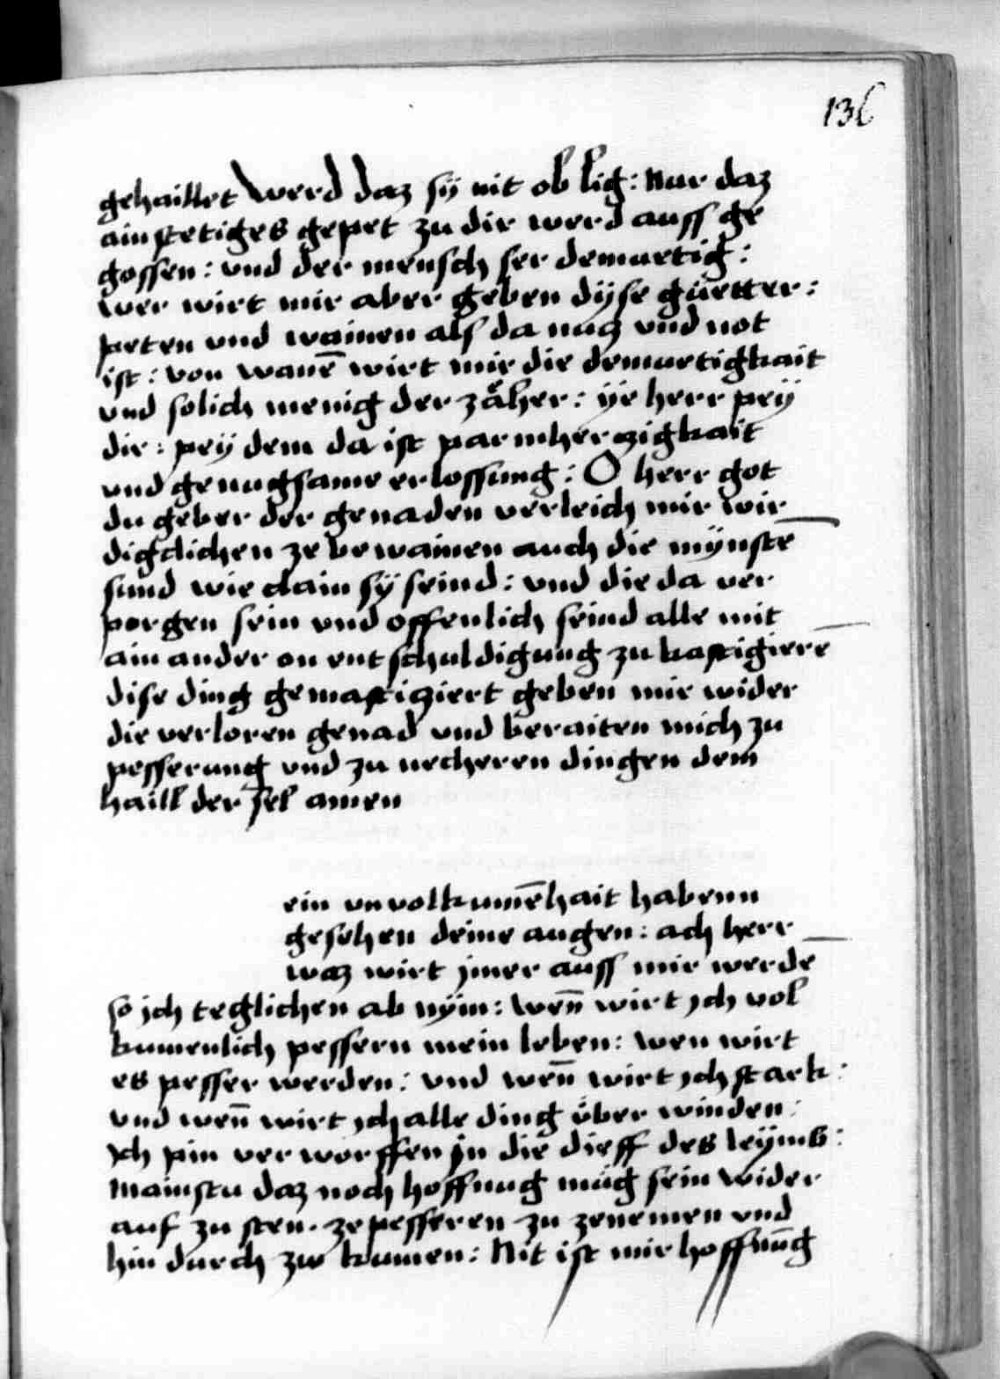 136
gehaillet werd daz sÿ nit ob lig: Nur daz
ain stetiges gepet zu dir werd auss ge
gossen: vnd der mensch ser demuetig:
wer wirt mir aber geben dÿse güetter:
peten vnd wainen als da nucz vnd not
ist: von wanē wirt mir die demuetigkait
vnd solich menig der zäher: ÿe herr peÿ
dir: peÿ dem da ist parmherczigkait
vnd genugsame erlossung: O herr got
du geber der genaden verleich mir wir
digclichen ze bewainen auch die mÿnstē
sund wie clain sÿ seind: vnd die da ver
porgen sein vnd offenlich seind alle mit
ain ander on entschuldigung zu kastigierē
dise ding gemastigiert geben mir wider
die verloren genad vnd beraiten mich zu
pesserung vnd zu necheren dingen dem
haill der sel amen
ein vnvolkumēhait habenn
gesehen deine augen: ach herr
waz wirt jmer auss mir werdē
so jch teglichen ab nÿm: wen̄ wirt jch vol
kumenlich pessern mein leben: wen wirt
es pesser werden: vnd wen̄ wirt jch stark:
vnd wen̄ wirt jch alle ding über winden:
Jch pin ver worffen jn die dieff des leÿms:
mainstu daz noch hoffnug müg sein wider
auf zu sten. ze pesseren zu zenemen vnd
hin durch zw kumen: Nit ist mir hoffnūg